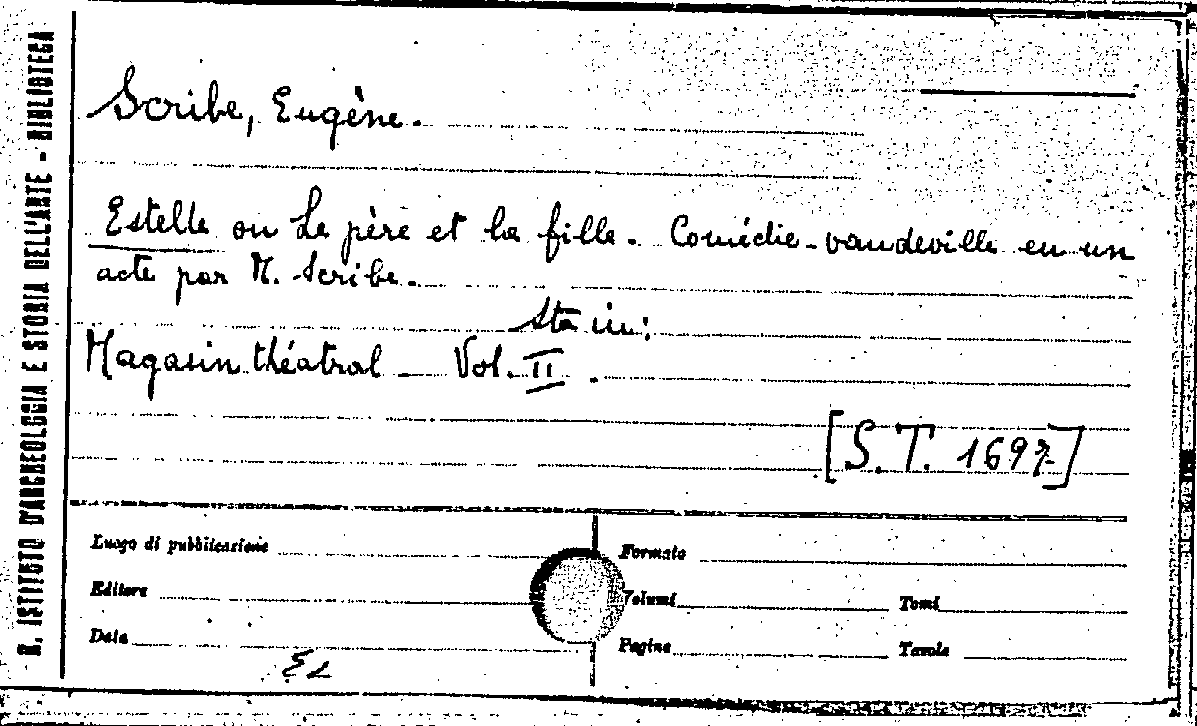 R. ISTITUTO D'ARCHEOLOGIA E STORIA DELL'ARTE - BIBLIOTECA
Scribe, Eugène.
Estelle ou Le père et la fille. Comédie-vaudeville en un
acte par M. Scribe.
Sta in:
Magasin théatral - Vol. II.
[S.T. 169]
Luogo di pubblicazione
Formato
Editore
Volumi
Tomi
Data
Pagine
Tavole